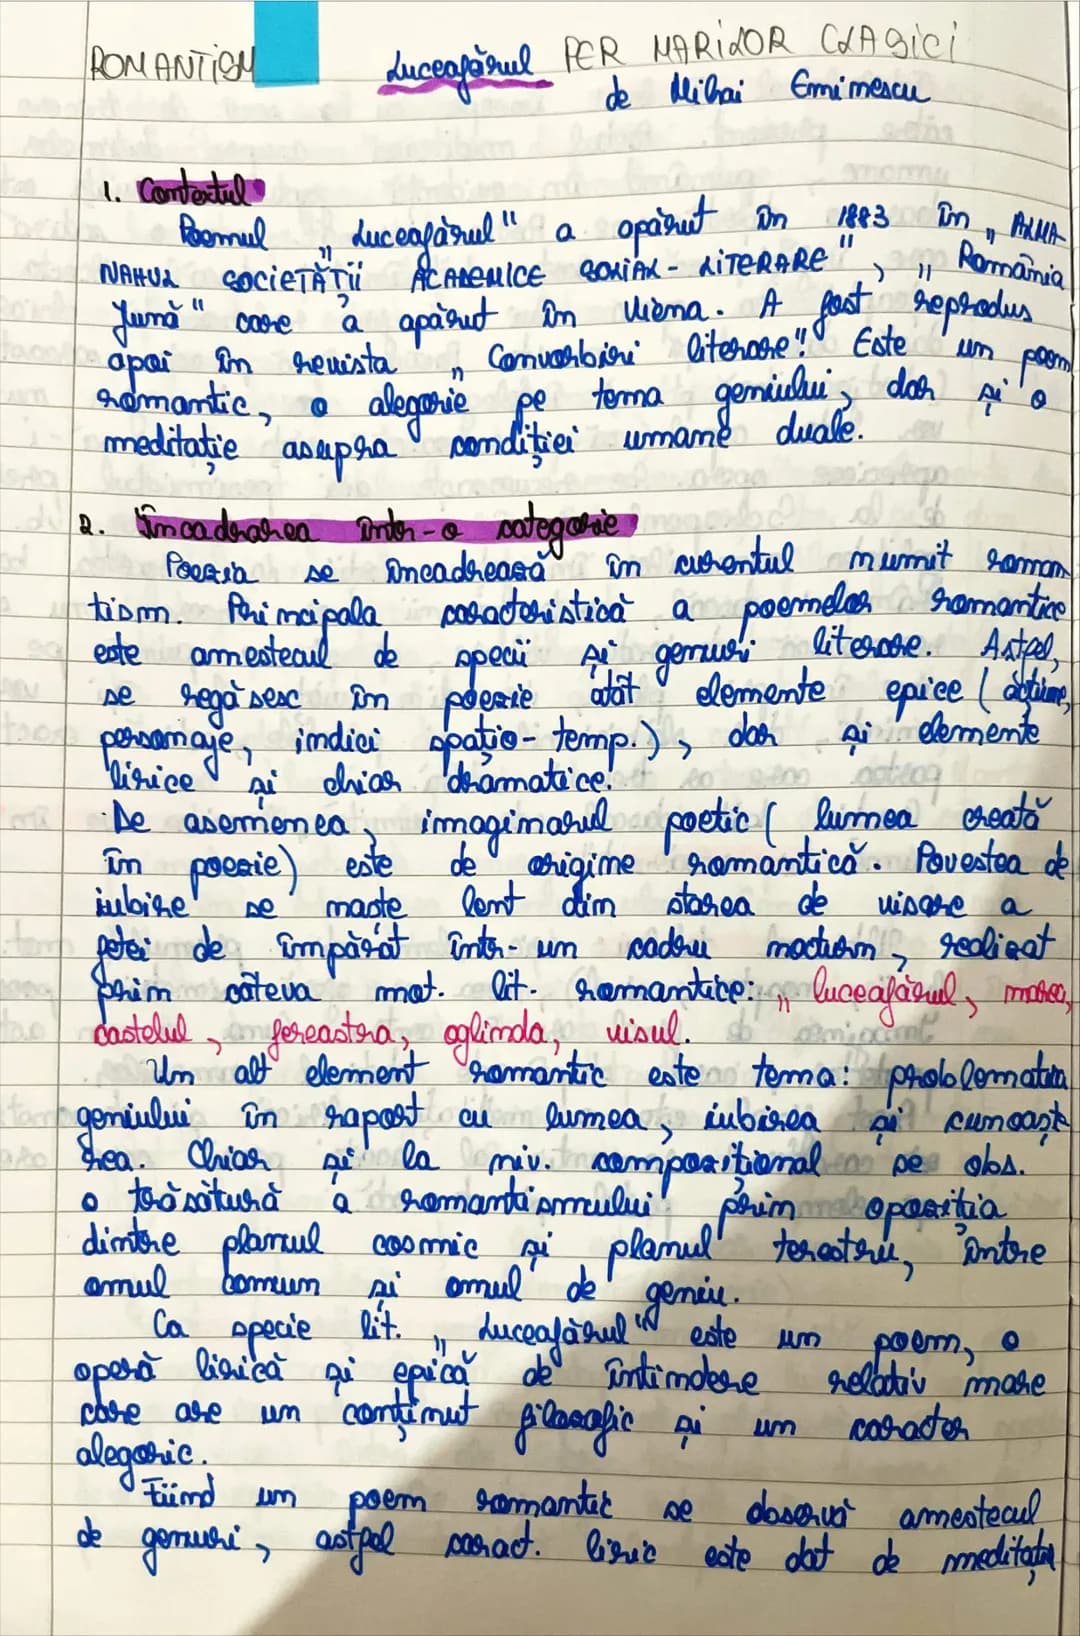 ROMANTISM Luceafărul PER MARILOR CLASICI
de Mihai Eminescu
1. Contextul
Poemul „Luceafărul" a apărut în 1883 în „ALMA-
NAHUL SOCIETĂȚII ACADEMICE SOCIAL-LITERARE", „România
Jună" care a apărut în Viena. A fost reprodus
apoi în revista „Convorbiri literare". Este un poem
romantic, o alegorie pe tema geniului, dar și o
meditație asupra condiției umane duale.
2. Încadrarea într-o categorie
Poezia se încadrează în curentul numit roman
tism. Principala caracteristică a poemelor romantice
este amestecul de specii și genuri literare. Astfel,
se regăsesc în poezie atât elemente epice (acțiune,
personaje, indici spațio-temp.), dar și elemente
lirice și chiar dramatice.
De asemenea, imaginarul poetic (lumea creată
în poezie) este de origine romantică. Povestea de
iubire se naște lent din starea de visare a
fetei de împărat într-un cadru nocturn, realizat
prin câteva mot. lit. romantice: „luceafărul, marea,
castelul, fereastra, oglinda, visul.
Un alt element romantic este tema: problematica
geniului în raport cu lumea, iubirea și cunoaște
rea. Chiar și la niv. compozițional se obs.
o trăsătură a romantismului prin opoziția
dintre planul cosmic și planul terestru, între
omul comun și omul de geniu.
Ca specie lit. „Luceafărul" este un poem, o
operă lirică și epică de întindere relativ mare
care are un conținut filosofic și un caracter
alegoric.
Fiind un poem romantic se observă amestecul
de genuri, astfel caract. liric este dat de meditația